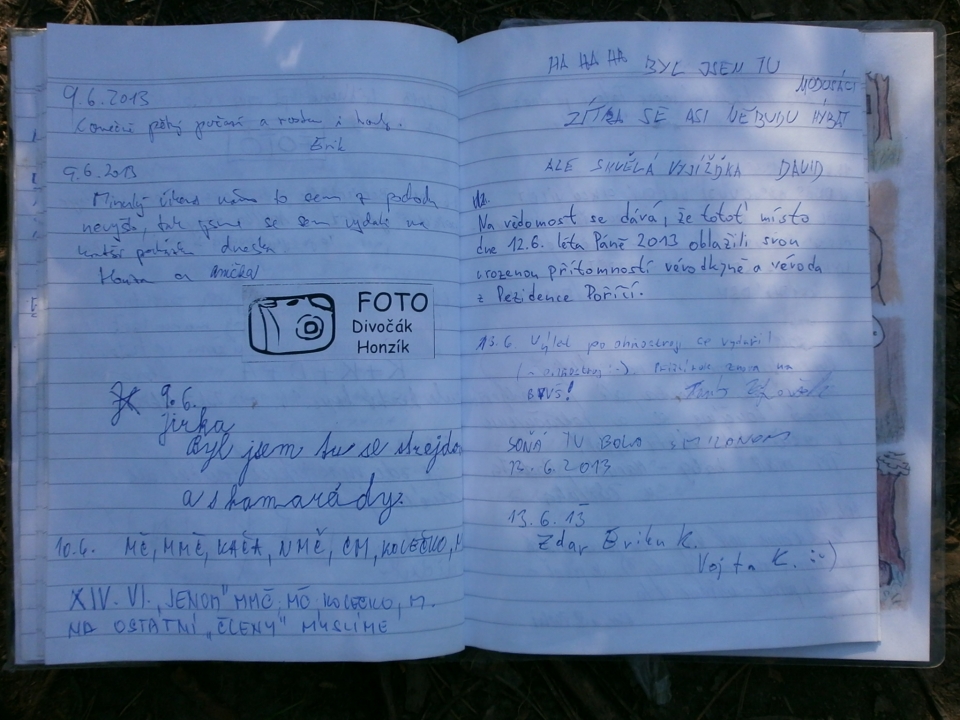 9.6.2013
Konečně pěkný počasí a rostu i houby.
Erik
9.6.2013
Minulý víkend nám to sem z
nevyšlo, tak jsme se sem vydali na
dneska
Honza a Anička
FOTO
Divočák
Honzík
9.6.
jirka
Byl jsem tu se strejdo
a s kamarády.
10.6. MČ, MMČ, KAČA, NMČ, ČM, KOLEČKO, M
XIV. VI. „JENOM" MMČ, MČ, KOLEČKO, M.
NA OSTATNÍ „ČLENY" MYSLÍME
HA HA HA BYL JSEM TU
ZÍTRA SE ASI NEBUDU HÝBAT
ALE SKVĚLÁ VYJÍŽĎKA DAVID
Na vědomost se dává, že totoť místo
dne 12.6. léta Páně 2013 oblažili svou
urozenou přítomností vévodkyně a vévoda
z Rezidence Poříčí.
13.6 Výlet po ohňostroj se vydařil!
na
SOŇA TU BOLA S MILANOM
13.6.2013
13.6.13
Zdar Eriku K.
Vojta K. :-)